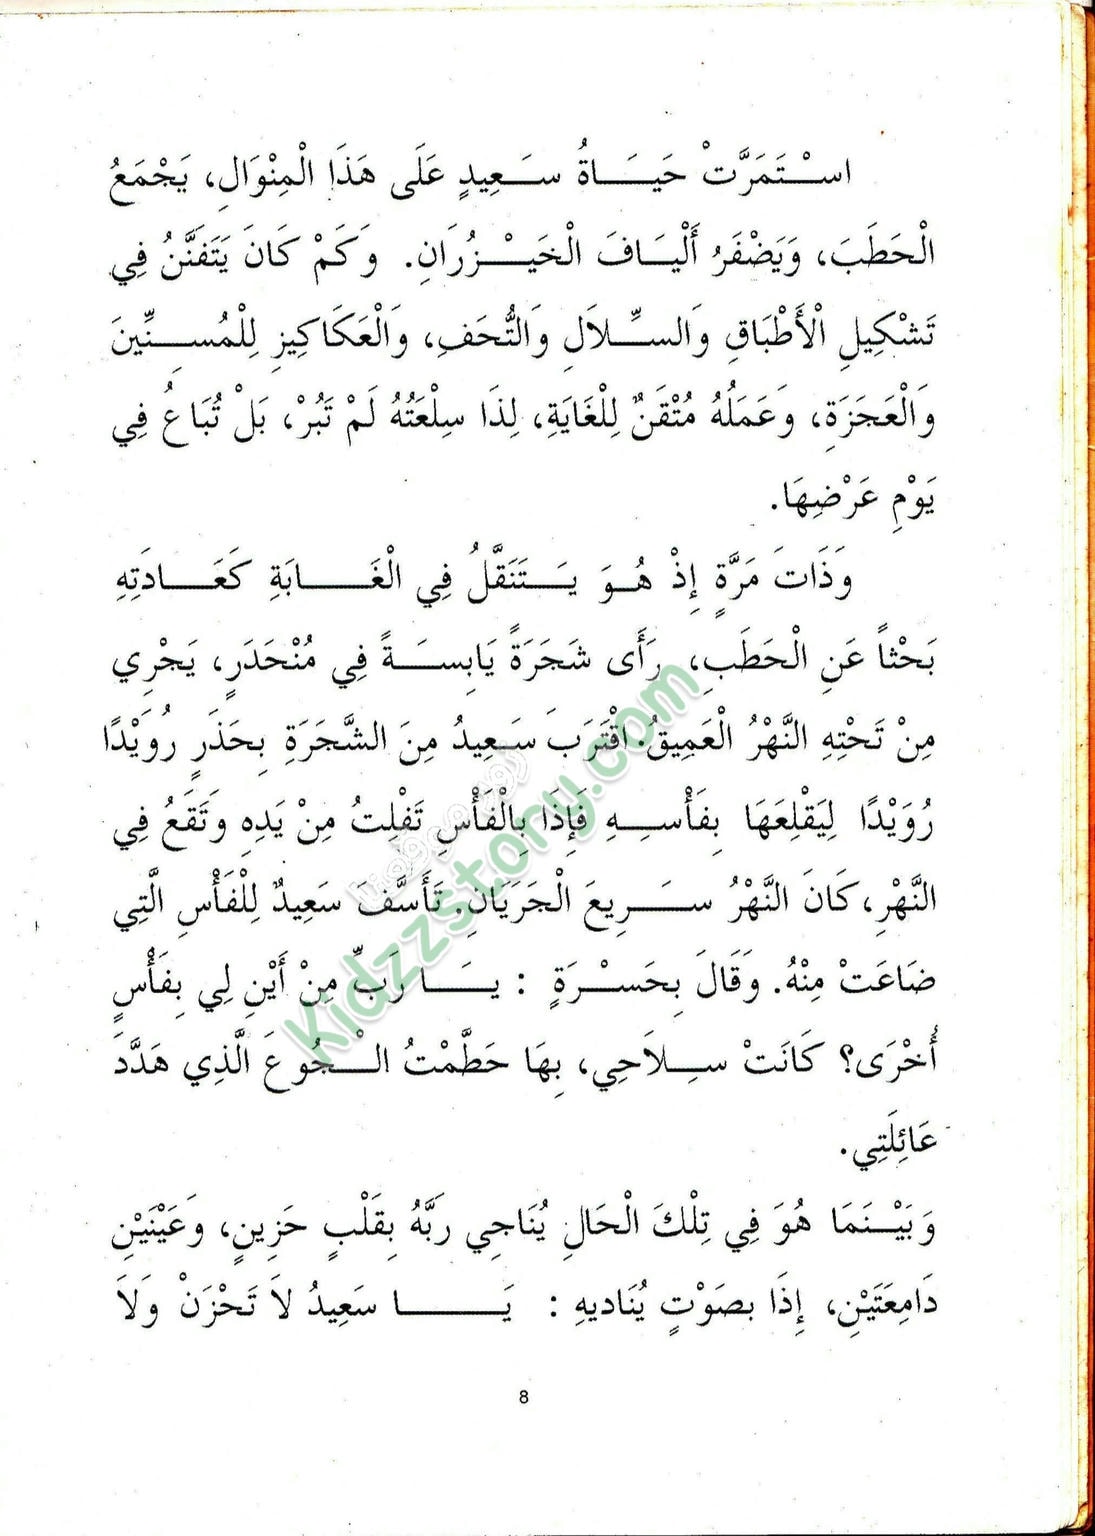 اسْتَمَرَّتْ حَيَاةُ سَعِيدٍ عَلَى هَذَا الْمِنْوَالِ، يَجْمَعُ
الْحَطَبَ، وَيَضْفَرُ أَلْيَافَ الْخَيْزُرَانِ. وَكَمْ كَانَ يَتَفَنَّنُ فِي
تَشْكِيلِ الْأَطْبَاقِ وَالسِّلاَلِ وَالتُّحَفِ، وَالْعَكَاكِيزِ لِلْمُسِنِّينَ
وَالْعَجَزَةِ، وَعَمَلُهُ مُتْقَنٌ لِلْغَايَةِ، لِذَا سِلْعَتُهُ لَمْ تَبُرْ، بَلْ تُبَاعُ فِي
يَوْمِ عَرْضِهَا.
وَذَاتَ مَرَّةٍ إِذْ هُوَ يَتَنَقَّلُ فِي الْغَابَةِ كَعَادَتِهِ
بَحْثاً عَنِ الْحَطَبِ، رَأَى شَجَرَةً يَابِسَةً فِي مُنْحَدَرٍ، يَجْرِي
مِنْ تَحْتِهِ النَّهْرُ الْعَمِيقُ. اقْتَرَبَ سَعِيدُ مِنَ الشَّجَرَةِ بِحَذَرٍ رُوَيْدًا
رُوَيْدًا لِيَقْلِعَهَا بِفَأْسِهِ فَإِذَا بِالْفَأْسِ تَفْلِتُ مِنْ يَدِهِ وَتَقَعُ فِي
النَّهْرِ، كَانَ النَّهْرُ سَرِيعَ الْجَرَيَانِ. تَأَسَّفَ سَعِيدٌ لِلْفَأْسِ الَّتِي
ضَاعَتْ مِنْهُ. وَقَالَ بِحَسْرَةٍ : يَا رَبِّ مِنْ أَيْنِ لِي بِفَأْسٍ
أُخْرَى؟ كَانَتْ سِلاَحِي، بِهَا حَطَّمْتُ الْجُوعَ الَّذِي هَدَّدَ
عَائِلَتِي.
وَبَيْنَمَا هُوَ فِي تِلْكَ الْحَالِ يُنَاجِي رَبَّهُ بِقَلْبٍ حَزِينٍ، وَعَيْنَيْنِ
دَامِعَتَيْنِ، إِذَا بصَوْتٍ يُنَاديهِ : يَا سَعِيدُ لاَ تَحْزَنْ وَلاَ
8
Kidzzstory.com